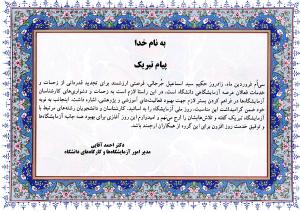 به نام خدا
پیام تبریک
سی‌اُم فروردین ماه، زادروز حکیم سید اسماعیل جُرجانی، فرصتی ارزشمند برای تجدید قدردانی از زحمات و
خدمات فعالان عرصه آزمایشگاهی دانشگاه است. در این راستا لازم است از زحمات و دشواری‌های کارشناسان
آزمایشگاه‌ها در فراهم کردن بستر لازم جهت بهبود فعالیت‌های آموزشی و پژوهشی، اشاره داشت. اینجانب به نوبه
خود ضمن گرامیداشت این مناسبت، روز ملی آزمایشگاه را به تمامی اساتید، کارشناسان و دانشجویان رشته‌های مرتبط با
آزمایشگاه تبریک گفته و تلاش‌هایشان را ارج می‌نهم و امیدوارم این روز آغازی برای بهبود همه جانبه آزمایشگاه‌ها
و توفیق خدمت روز افزون برای این گروه از همکاران ارجمند باشد.
دکتر احمد آقایی
مدیر امور آزمایشگاه‌ها و کارگاه‌های دانشگاه